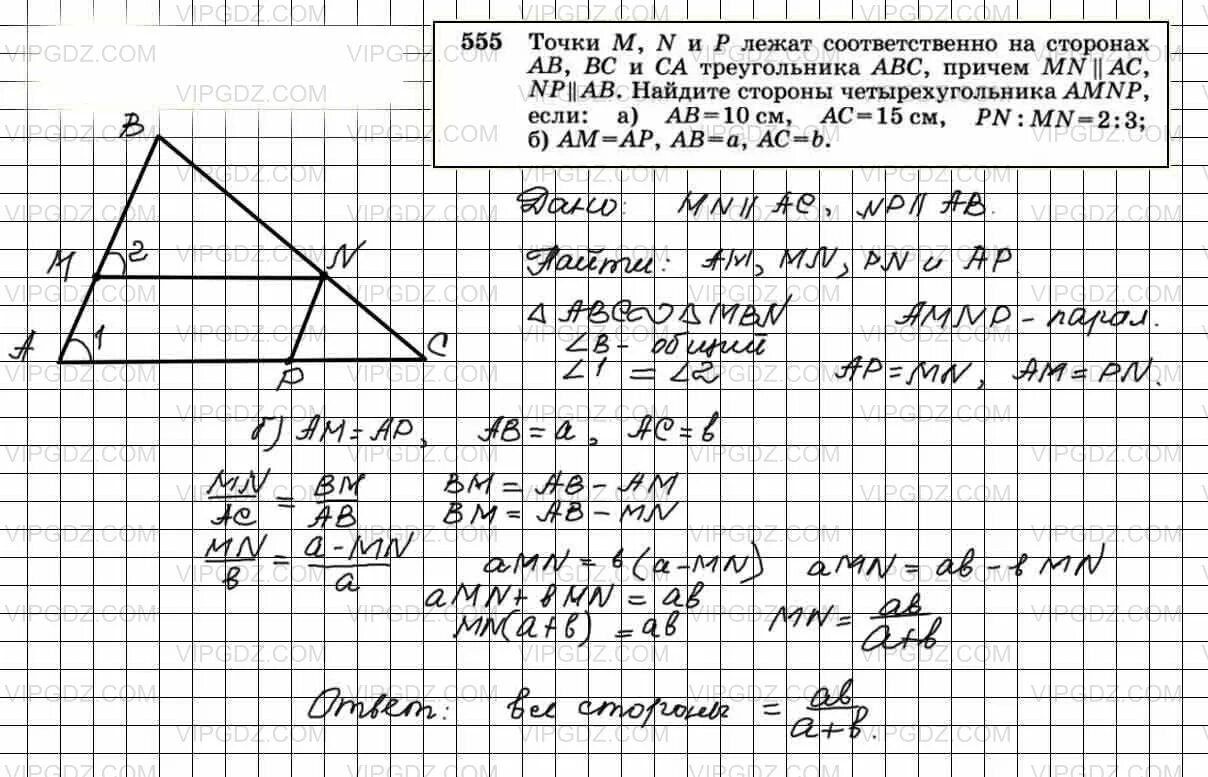 555 Точки M, N и P лежат соответственно на сторонах
AB, BC и CA треугольника ABC, причем MN || AC,
NP || AB. Найдите стороны четырехугольника AMNP,
если: а) AB=10 см, AC=15 см, PN : MN=2 : 3;
б) AM=AP, AB=a, AC=b.
B
M 2 N
A 1 P C
Дано: MN || AC, NP || AB.
Найти: AM, MN, PN и AP
△ ABC ∾ △ MBN AMNP - парал.
∠B - общий
∠1 = ∠2 AP = MN, AM = PN.
б) AM = AP, AB = a, AC = b
MN/AC = BM/AB BM = AB - AM
BM = AB - MN
MN/b = a - MN/a aMN = b(a-MN) aMN = ab - b MN
aMN + bMN = ab
MN(a+b) = ab MN = ab/a+b
Ответ: все стороны = ab/a+b.
VIPGDZ.COM